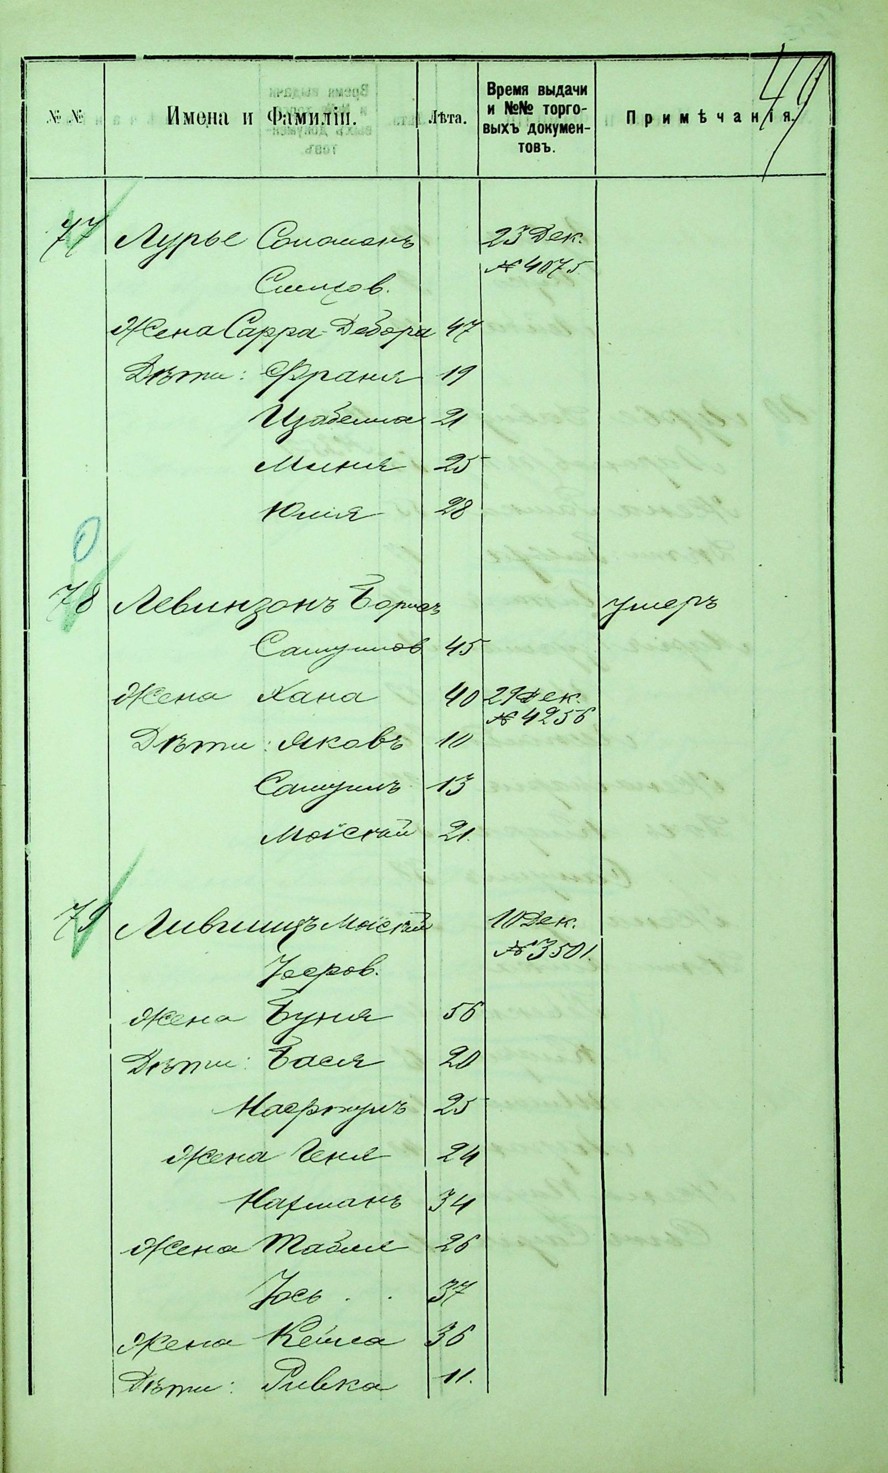 49
№ №
Имена и Фамиліи.
Лѣта.
Время выдачи
и №№ торго-
выхъ докумен-
товъ.
Примѣчанія.
77 Лурье Соломонъ 23 Дек.
№ 4075
Жена Сарра-Дебора 47
Дѣти: Франя 19
Изабелла 21
Минья 25
Юлія 28
78 Левинзонъ Борисъ умеръ
Самуилов 45
Жена Хана 40 29 Дек.
№ 4256
Дѣти: Яковъ 10
Самуилъ 13
Мойсей 21.
79 Лившицъ Мойсей 10 Дек.
№ 3501.
Жена Буня 56
Дѣти: Бася 20
25
Жена Геня 24
Нахманъ 34
Жена Табля 26
Іось . . 37
Жена Кейла 36
Дѣти: Ривка 11.